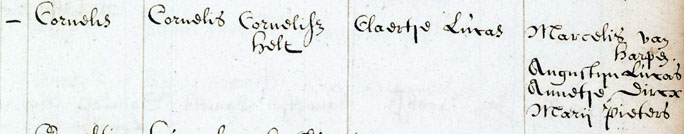 – Cornelis
Cornelis Cornelisz
Helt
Claertje Lucas
Marcelis van
Harpen
Augustijn Lucas
Annetje Dircx
Marij Pieters